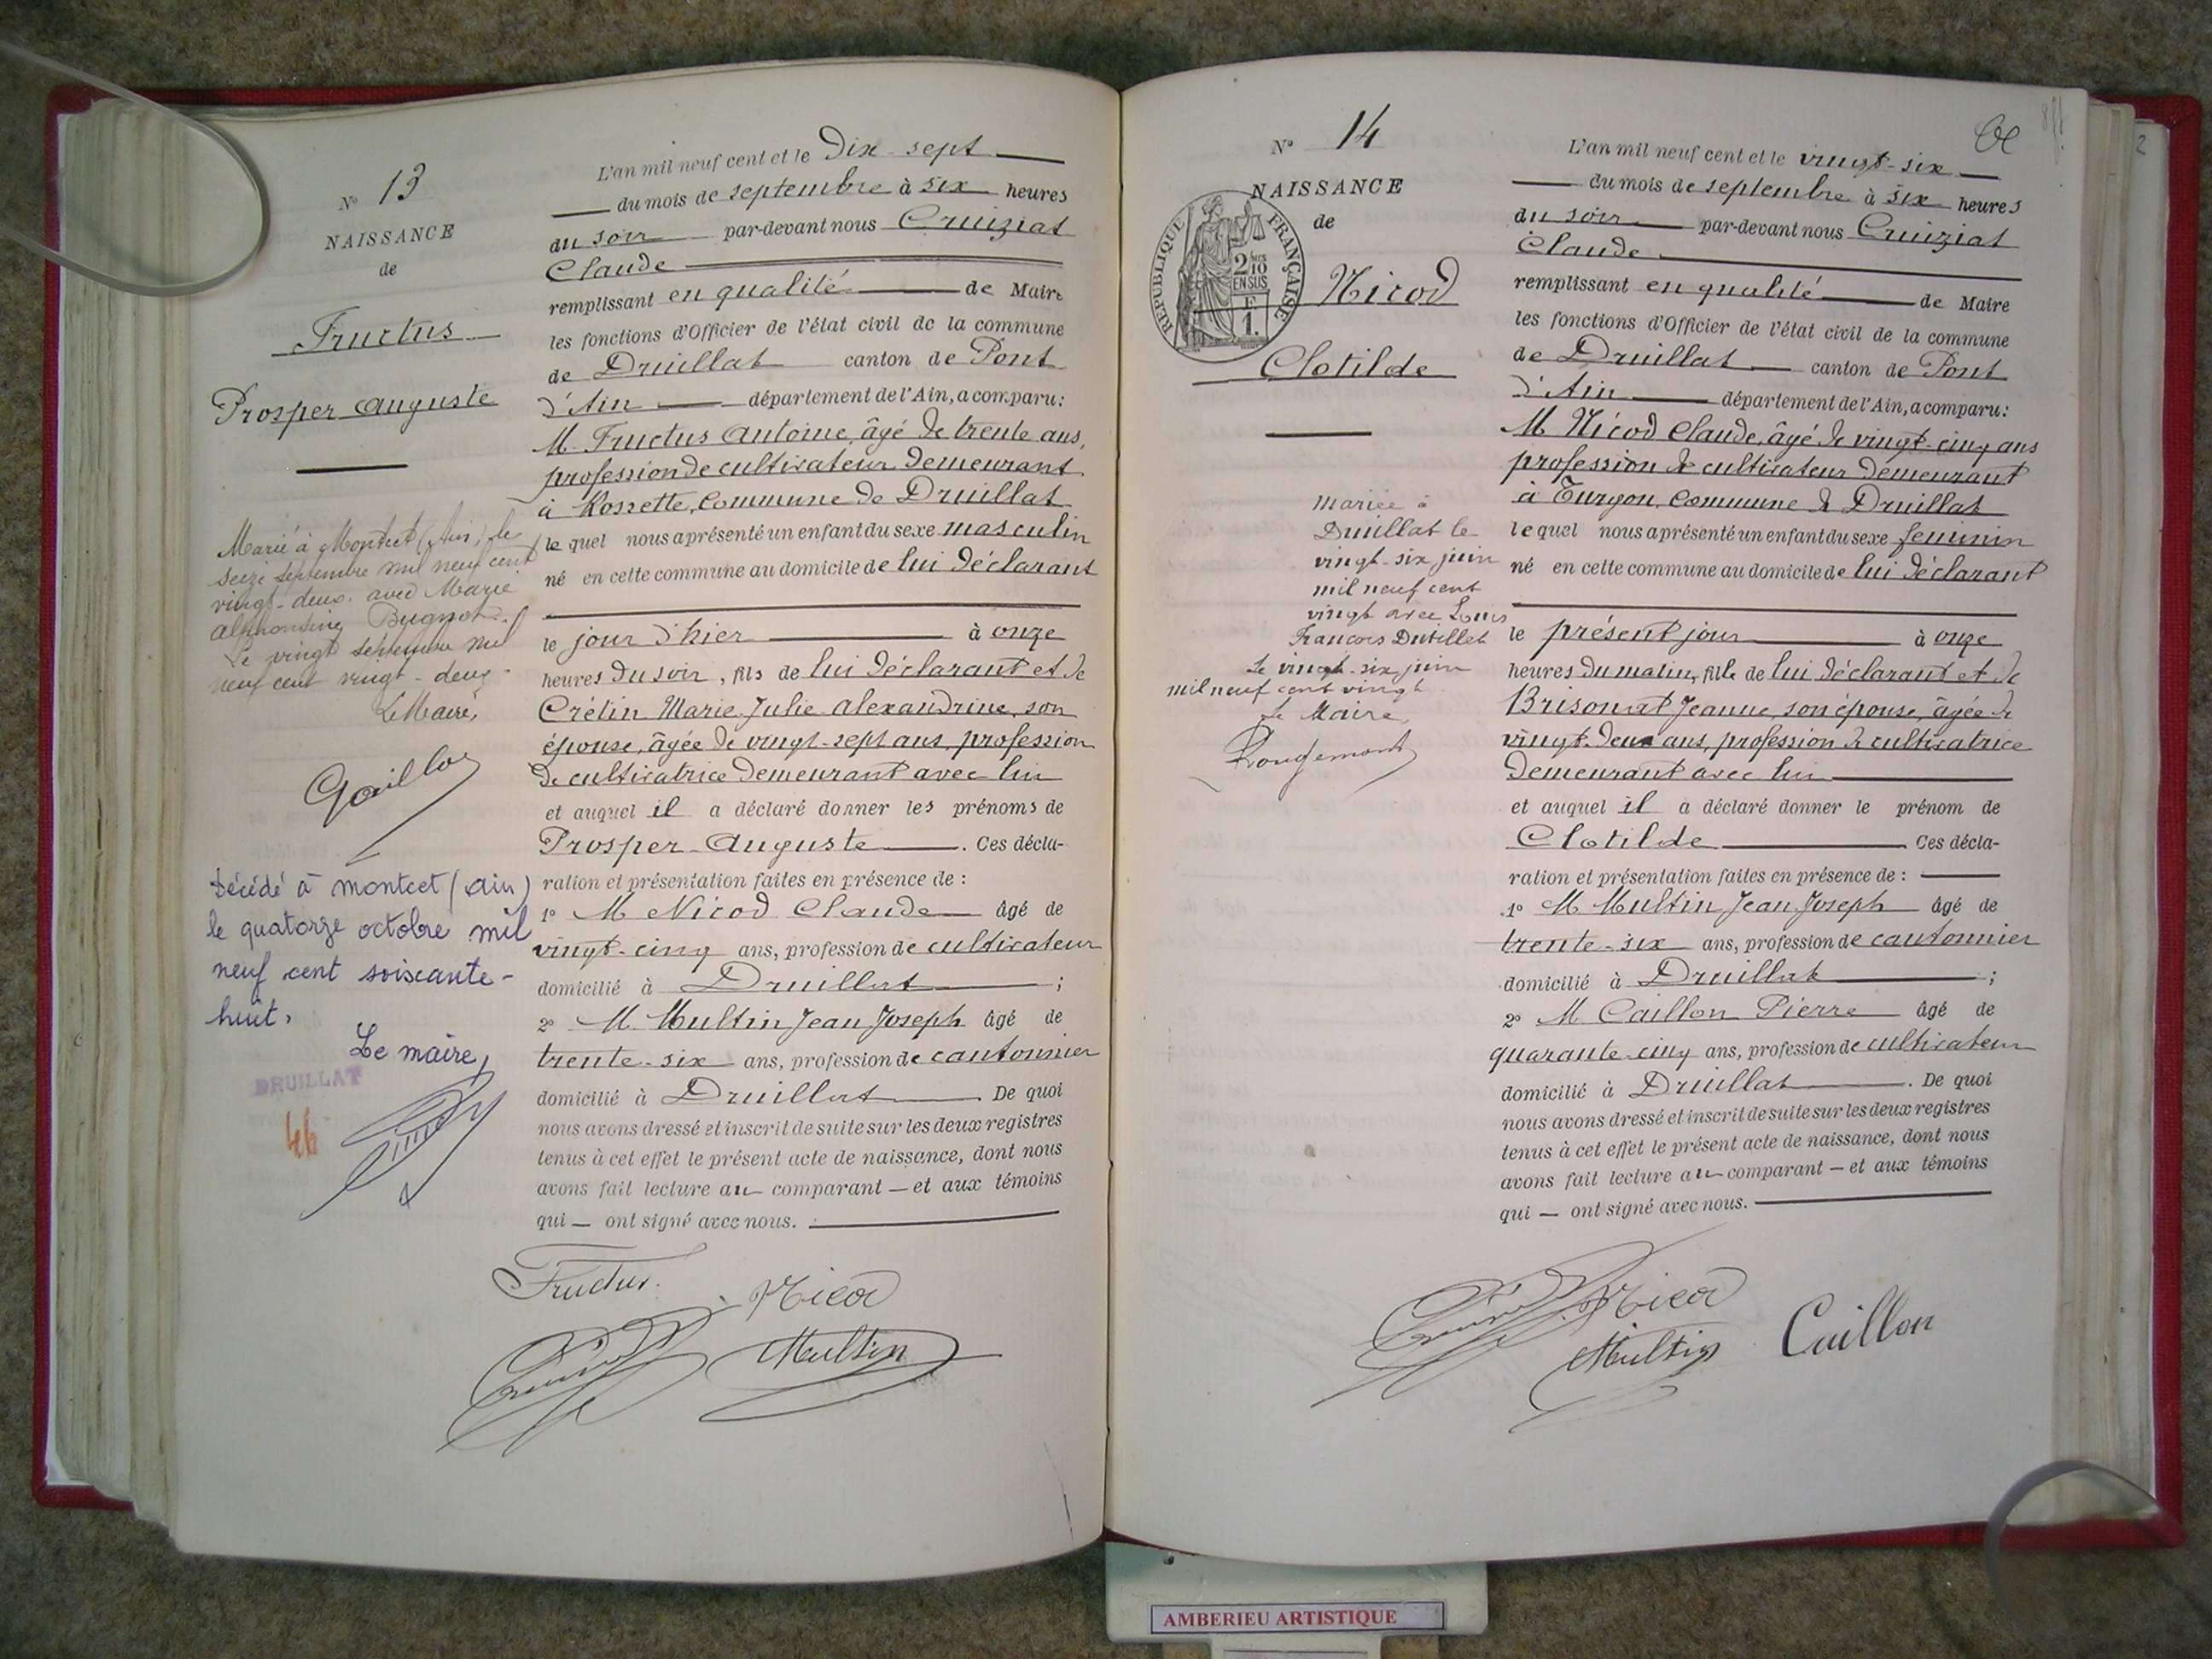 N° 13
NAISSANCE
de
Fructus
Prosper Auguste
Marié à Montcet (Ain) le
seize septembre mil neuf cent
vingt-deux avec Marie
Alphonsine Bugnot.
Le vingt septembre mil
neuf cent vingt-deux
Le Maire,
Décédé à Montcet (Ain)
le quatorze octobre mil
neuf cent soixante-
huit.
Le maire,
DRUILLAT
46
L'an mil neuf cent et le Dix-sept
du mois de septembre à six heures
du soir par-devant nous Cruiziat
Claude
remplissant en qualité de Maire
les fonctions d'Officier de l'état civil de la commune
de Druillat canton de Pont
d'Ain département de l'Ain, a comparu:
M. Fructus Antoine, âgé de trente ans,
profession de cultivateur demeurant
à Rossette, commune de Druillat
lequel nous a présenté un enfant du sexe masculin
né en cette commune au domicile de lui déclarant
le jour d'hier à onze
heures du soir, fils de lui déclarant et de
Crétin Marie Julie Alexandrine, son
épouse, âgée de vingt-sept ans, profession
de cultivatrice demeurant avec lui
et auquel il a déclaré donner les prénoms de
Prosper-Auguste. Ces décla-
ration et présentation faites en présence de :
1° M Nicod Claude âgé de
vingt-cinq ans, profession de cultivateur
domicilié à Druillat ;
2° M. Multin Jean Joseph âgé de
trente-six ans, profession de cantonnier
domicilié à Druillat De quoi
nous avons dressé et inscrit de suite sur les deux registres
tenus à cet effet le présent acte de naissance, dont nous
avons fait lecture au comparant — et aux témoins
qui — ont signé avec nous.
Fructus. Nicod
Multin
N° 14
NAISSANCE
de
RÉPUBLIQUE FRANÇAISE
2/10 EN SUS
1 F.
Nicod
Clotilde
Mariée à
Druillat le
vingt-six juin
mil neuf cent
vingt avec Louis
François Dutillet
Le vingt-six juin
mil neuf cent vingt
Le Maire,
Rougemont
L'an mil neuf cent et le vingt-six
du mois de septembre à six heures
du soir par-devant nous Cruiziat
Claude
remplissant en qualité de Maire
les fonctions d'Officier de l'état civil de la commune
de Druillat canton de Pont
d'Ain département de l'Ain, a comparu:
M Nicod Claude, âgé de vingt-cinq ans
profession de cultivateur demeurant
à Turgon, commune de Druillat
lequel nous a présenté un enfant du sexe féminin
né en cette commune au domicile de lui déclarant
le présent jour à onze
heures du matin, fille de lui déclarant et de
Brisonat Jeanne, son épouse, âgée de
vingt-deux ans, profession de cultivatrice
demeurant avec lui
et auquel il a déclaré donner le prénom de
Clotilde Ces décla-
ration et présentation faites en présence de :
1° M Multin Jean Joseph âgé de
trente-six ans, profession de cantonnier
domicilié à Druillat ;
2° M Caillon Pierre âgé de
quarante-cinq ans, profession de cultivateur
domicilié à Druillat. De quoi
nous avons dressé et inscrit de suite sur les deux registres
tenus à cet effet le présent acte de naissance, dont nous
avons fait lecture au comparant — et aux témoins
qui — ont signé avec nous.
Nicod
Multin Caillon
AMBERIEU ARTISTIQUE